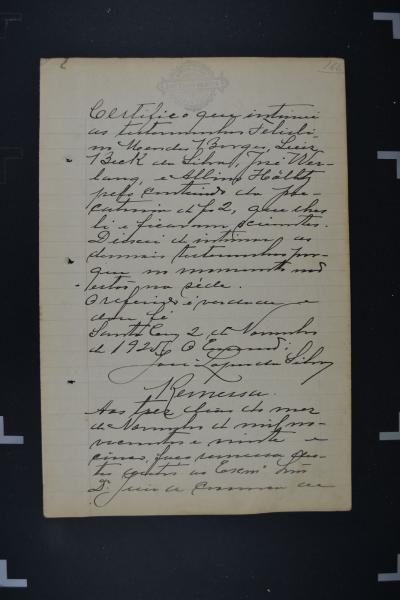 Certifico que intimei
as testemunhas Felisbi-
no Mendes Borges, Luiz
Beck da Silva, José Wer-
lang, e Albino
pelo conteúdo da pre-
catoria de fs 2, que lhes
li e ficaram scientes.
Deixei de intimar as
demais testemunhas por-
que no momento não
estão na séde.
O referido é verdade e
dou fé
Santa Cruz 2 de Novembro
de 1925. O
José Lopes da Silva
Remessa.
Aos trez dias do mez
de Novembro de mil no-
vecentos e vinte e
cinco, faço remessa des-
tes autos ao Exmº Snr.
Dr. Juiz de Comarca de